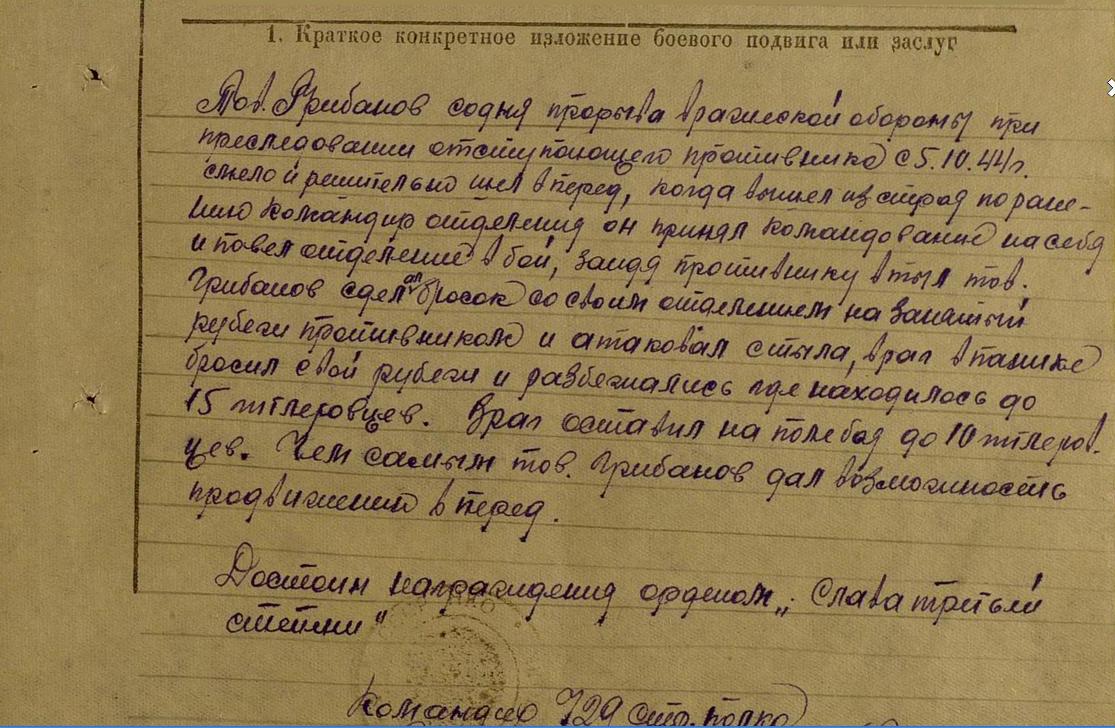 1. Краткое конкретное изложение боевого подвига или заслуг
Тов. Грибанов содня прорыва вражеской обороны при
преследовании отступающего противника с 5.10.44г.
смело и решительно шел вперед, когда вышел из строя по ране-
нию командир отделения он принял командование на себя
и повел отделение в бой, зайдя противнику в тыл тов.
Грибанов сделал бросок со своим отделением на занятый
рубеж противником и атаковал с тыла, враг в панике
бросил свой рубеж и разбежались где находилось до
15 гитлеровцев. Враг оставил на поле боя до 10 гитлеров.
цев. Чем самым тов. Грибанов дал возможность
продвижению вперед.
Достоин награждения орденом „Слава третьей
степени"
Командир 729 стр. полка